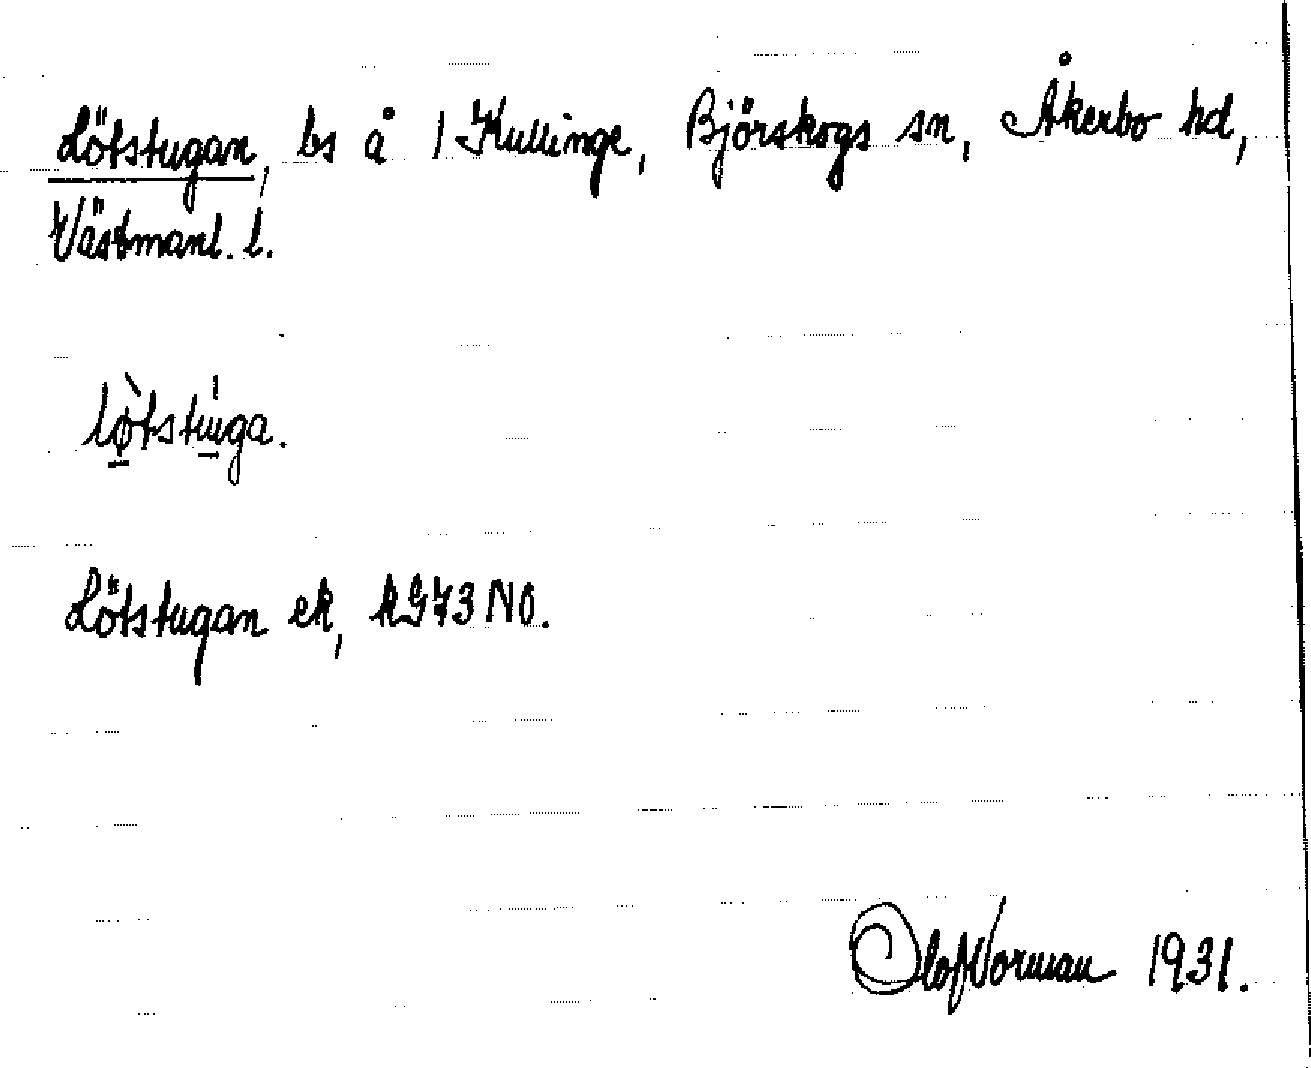 Lötstugan, bs å 1 Kullinge, Björskogs sn, Åkerbo hd,
Västmanl. l.
lø̀tstùga.
Lötstugan ek, k973 NO.
Olof Norman 1931.